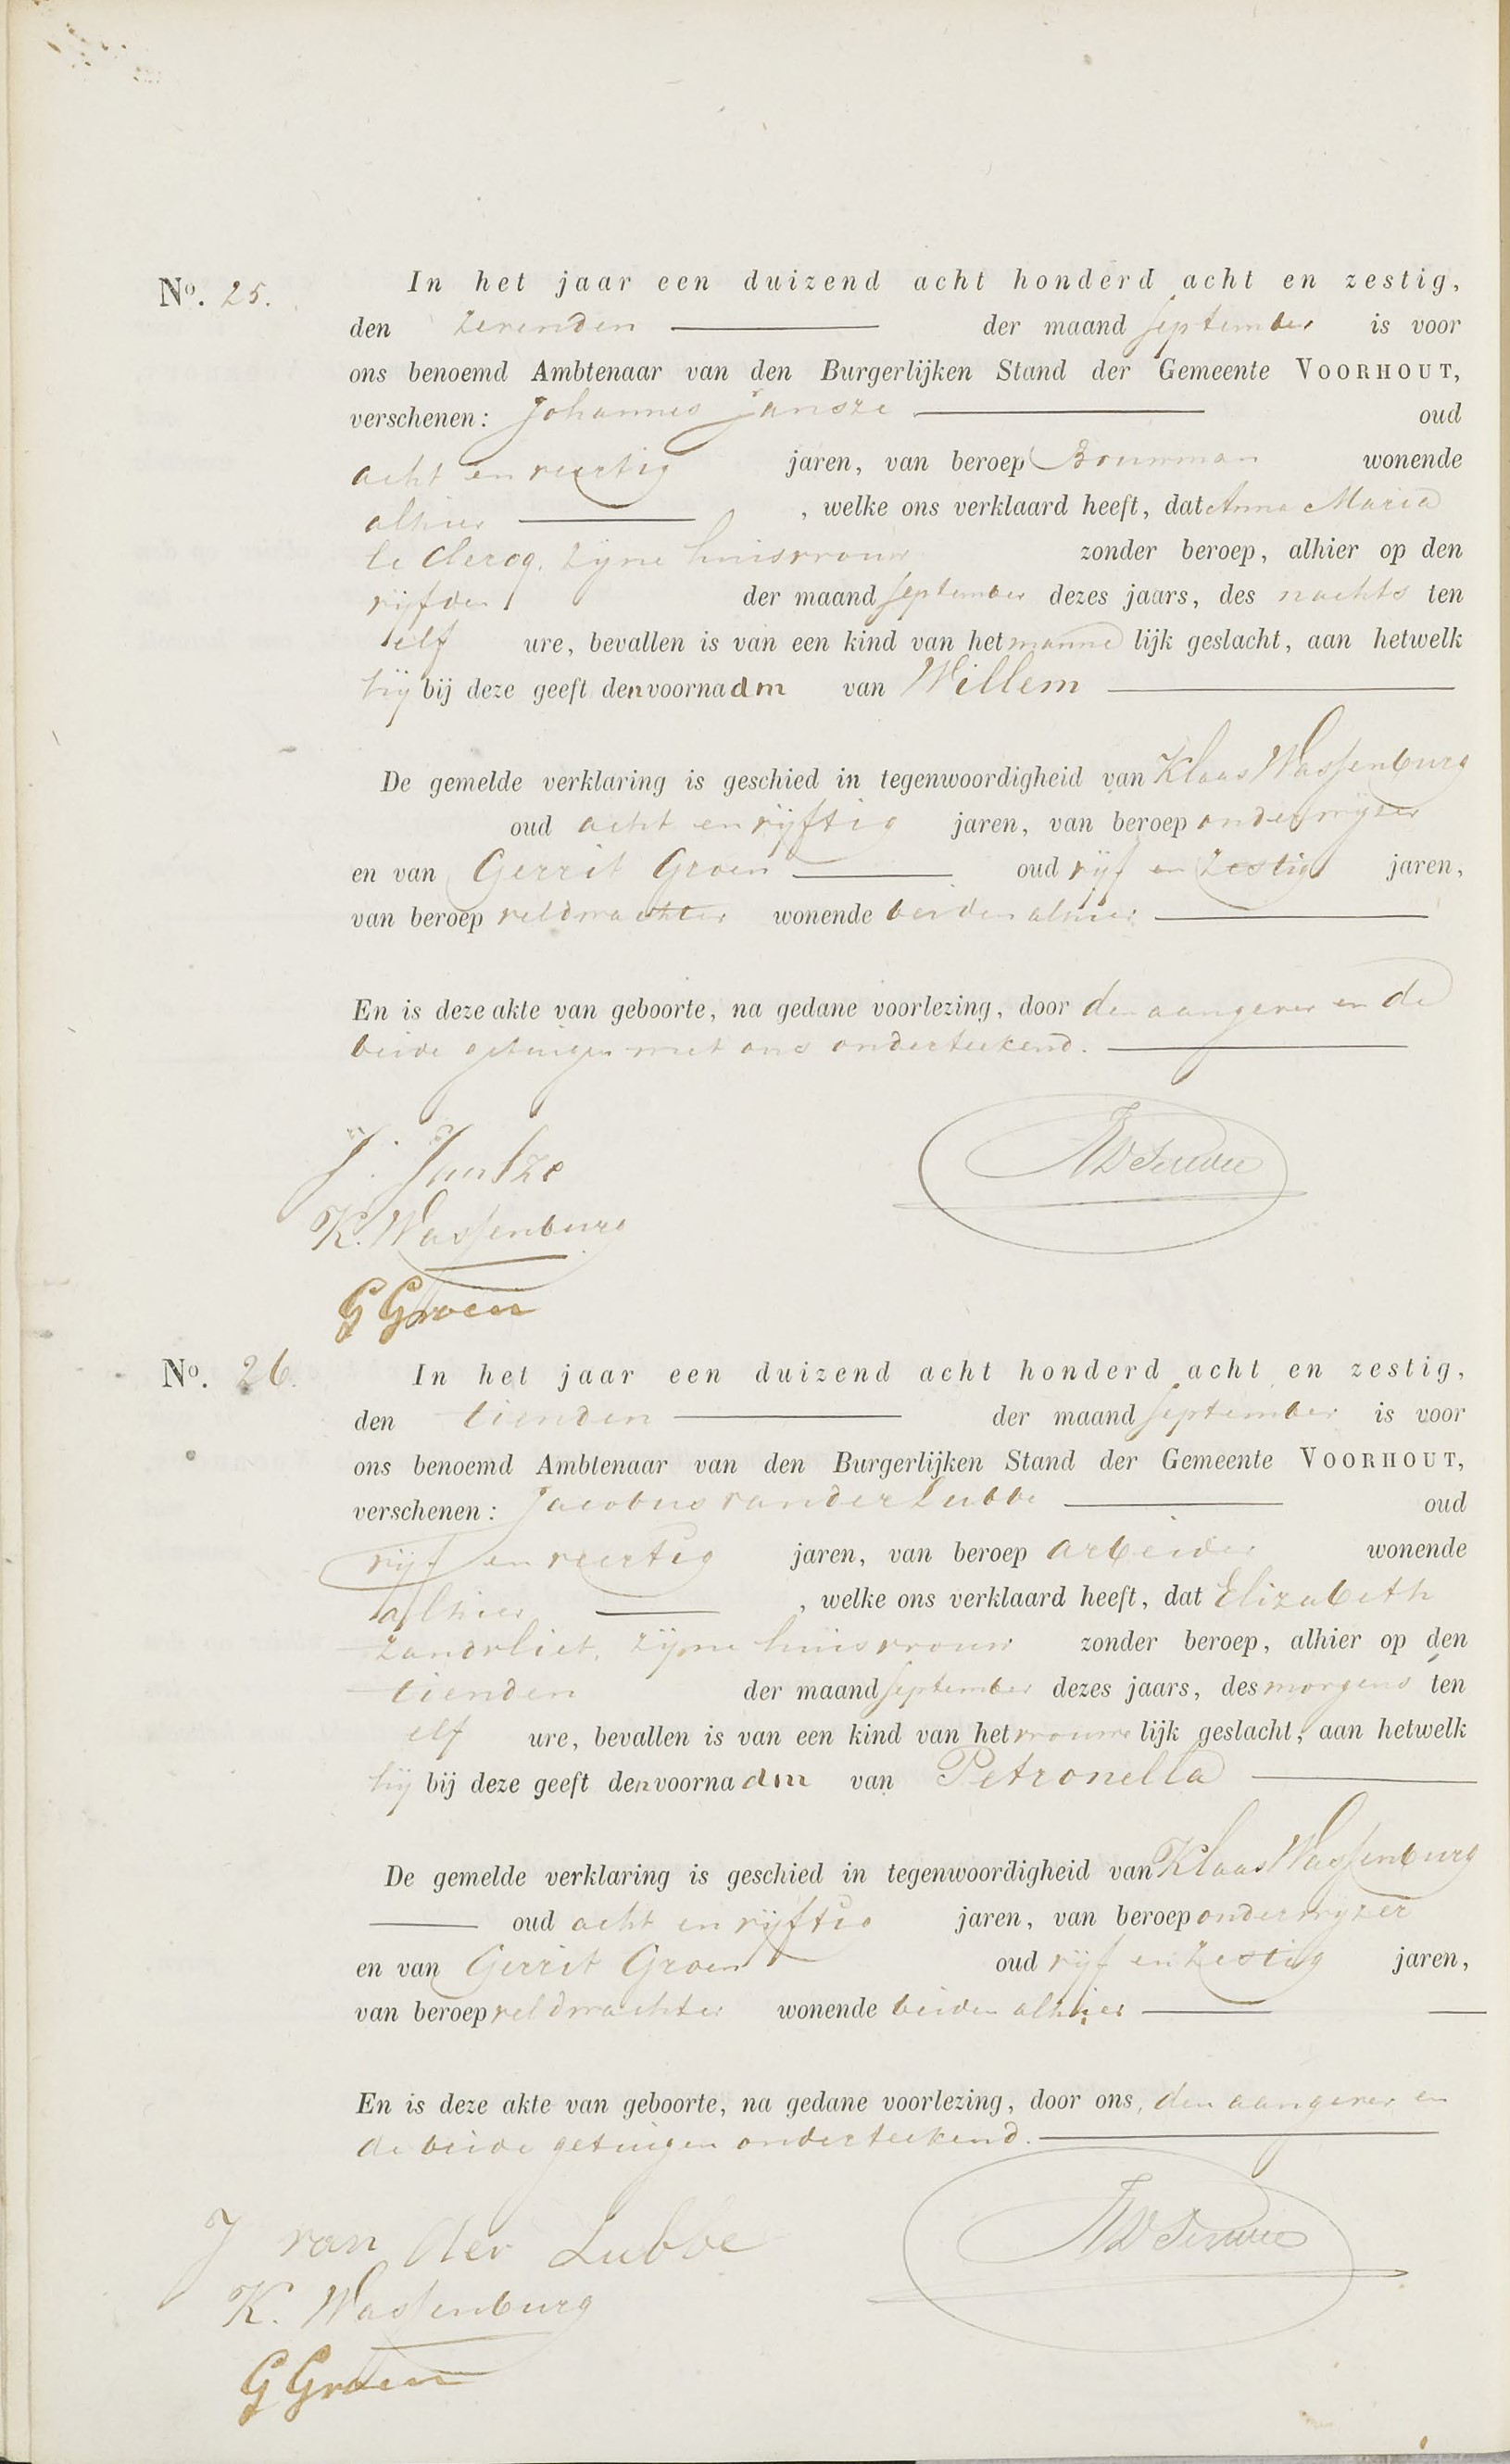 No. 25. In het jaar een duizend acht honderd acht en zestig,
den zevenden der maand september is voor
ons benoemd Ambtenaar van den Burgerlijken Stand der Gemeente VOORHOUT,
verschenen: Johannes Jansze oud
acht en veertig jaren, van beroep Bouwman wonende
alhier , welke ons verklaard heeft, dat Anna Maria
le Clercq, zijne huisvrouw zonder beroep, alhier op den
vijfden der maand september dezes jaars, des nachts ten
elf ure, bevallen is van een kind van het manne lijk geslacht, aan hetwelk
hij bij deze geeft den voornaam van Willem
De gemelde verklaring is geschied in tegenwoordigheid van Klaas Wassenburg
oud acht en vijftig jaren, van beroep onderwijzer
en van Gerrit Groen oud vijf en zestig jaren,
van beroep veldwachter wonende beiden alhier
En is deze akte van geboorte, na gedane voorlezing, door den aangever en de
beide getuigen met ons onderteekend.
J. Jansze
K. Wassenburg
G Groen
No. 26. In het jaar een duizend acht honderd acht en zestig,
den tienden der maand september is voor
ons benoemd Ambtenaar van den Burgerlijken Stand der Gemeente VOORHOUT,
verschenen: Jacobus van der Lubbe oud
vijf en veertig jaren, van beroep arbeider wonende
alhier , welke ons verklaard heeft, dat Elizabeth
Zandvliet, zijne huisvrouw zonder beroep, alhier op den
tienden der maand september dezes jaars, des morgens ten
elf ure, bevallen is van een kind van het vrouwe lijk geslacht, aan hetwelk
hij bij deze geeft den voornaam van Petronella
De gemelde verklaring is geschied in tegenwoordigheid van Klaas Wassenburg
oud acht en vijftig jaren, van beroep onderwijzer
en van Gerrit Groen oud vijf en zestig jaren,
van beroep veldwachter wonende beiden alhier
En is deze akte van geboorte, na gedane voorlezing, door ons, den aangever en
de beide getuigen onderteekend.
J van der Lubbe
K. Wassenburg
G Groen